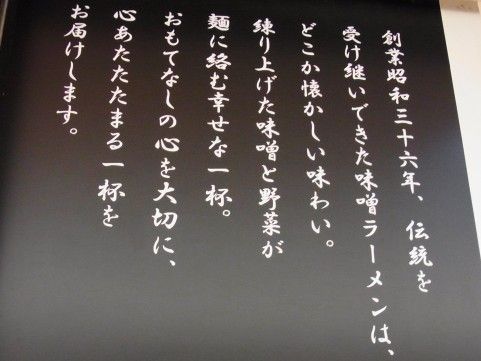 創業昭和三十六年、伝統を
受け継いできた味噌ラーメンは、
どこか懐かしい味わい。
練り上げた味噌と野菜が
麺に絡む幸せな一杯。
おもてなしの心を大切に、
心あたたたまる一杯を
お届けします。